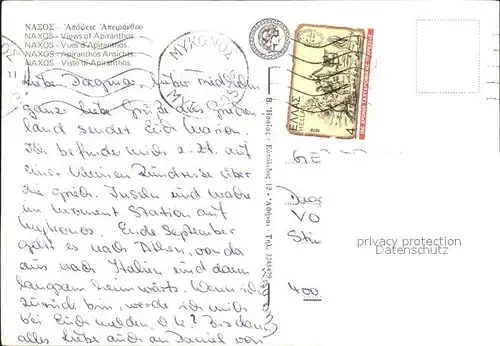 ΝΑΞΟΣ - Ἀπόψεις Ἀπειράνθου
NAXOS - Views of Apiranthos.
NAXOS - Vues d'Apiranthos.
NAXOS - Apiranthos Ansichten.
NAXOS - Viste di Apiranthos.
ΜΥΚΟΝΟΣ
ΕΛΛΑΣ
HELLAS
4
Liebe Dagmar, lieber
ganz liebe Grüße aus Griechen
land sendet Euch Marion.
Ich befinde mich z. Zt. auf
einer kleinen Rundreise über
die griech. Inseln und mache
im Moment Station auf
Mykonos. Ende September
geht es nach Athen, von da
aus nach Italien und dann
langsam heimwärts. Wenn ich
zurück bin, werde ich mich
bei Euch melden, O.k.? Bis dann
alles Liebe auch an Daniel von
12 - Ἀθῆναι - Τηλ. 3245429
VO
400
privacy protection
Datenschutz